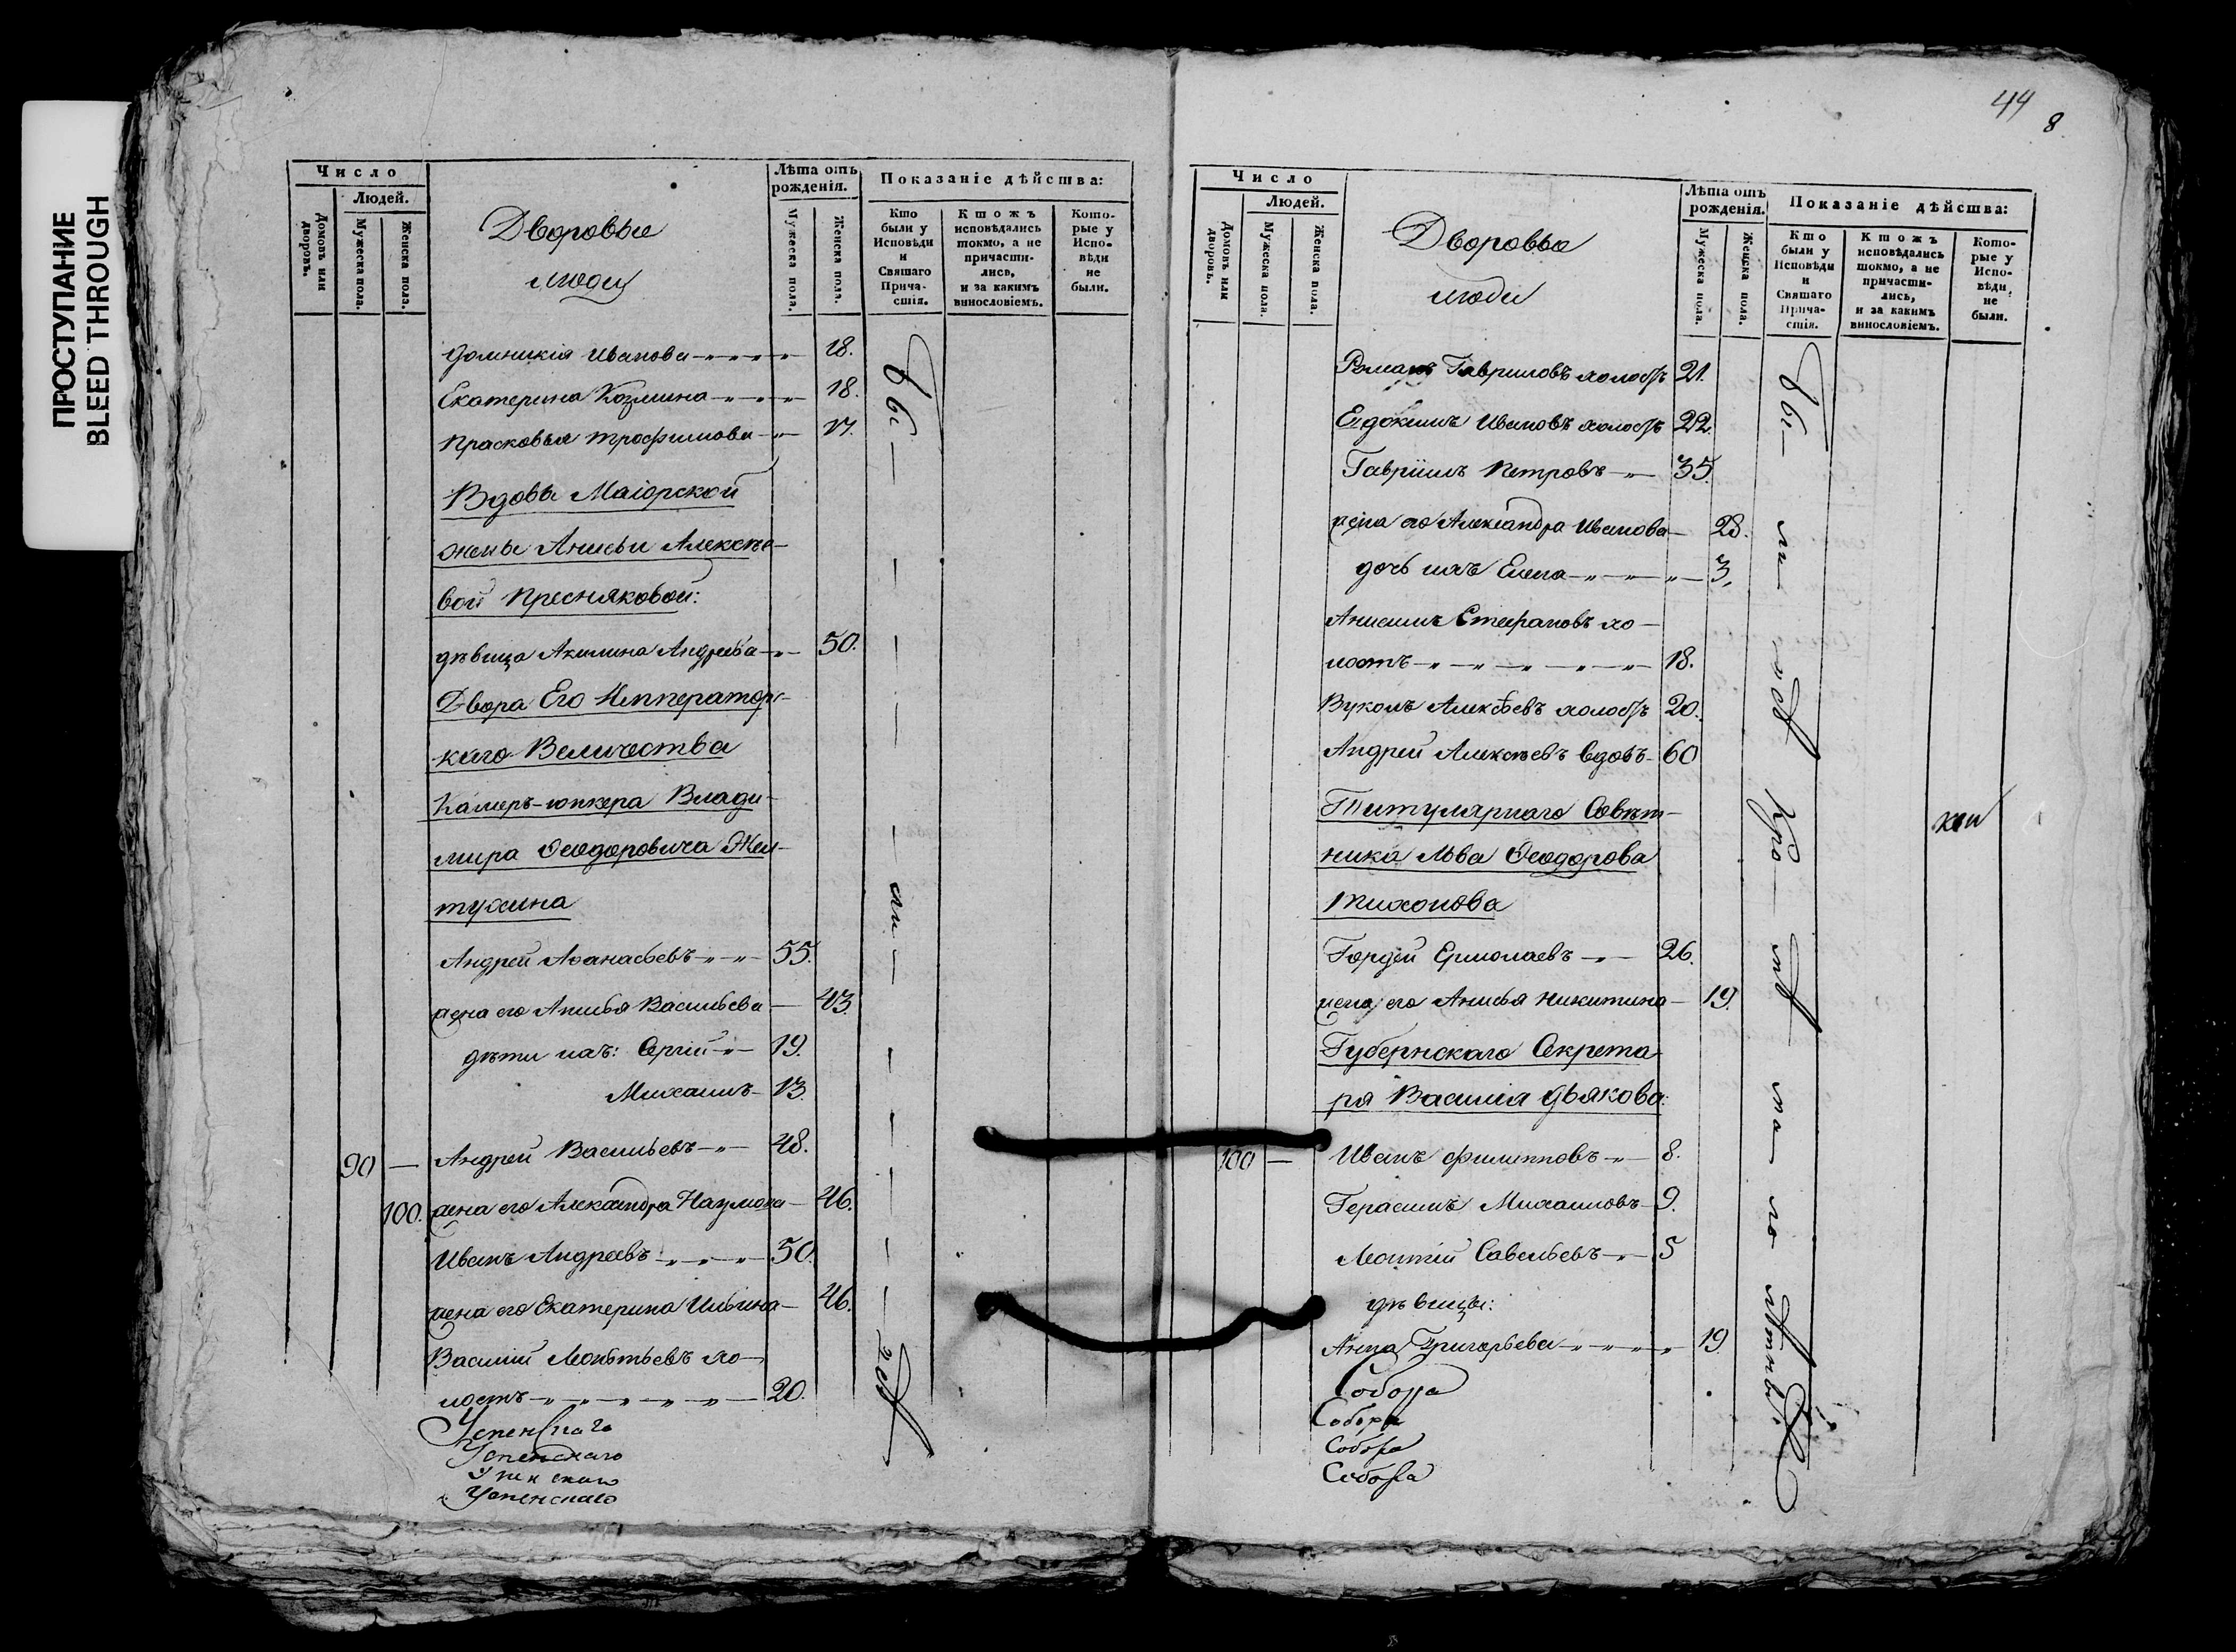 ПРОСТУПАНИЕ
BLEED THROUGH
Число
Людей.
Домовъ или дворовъ.
Мужеска пола.
Женска пола.
Дворовые
люди
Лѣта отъ рожденія.
Мужеска пола.
Женска пола.
Показаніе дѣйства:
Кто были у Исповѣди и Святаго Прича-стія.
Ктожъ исповѣдались токмо, а не причасти-лись, и за какимъ винословіемъ.
Кото-рые у Испо-вѣди не были.
Домникія Иванова 18.
Екатерина Козмина 18.
Прасковья Трофимова 17.
Вдовы Маіорской
жены Анисьи Алексѣе-
вой Пресняковой:
дѣвица Акилина Андреева 50.
Двора Его Императорс-
каго Величества
Камеръ-юнкера Влади-
мира Ѳеодоровича Жел-
тухина
Андрей Аѳанасьевъ 55.
жена его Анисья Васильева 43.
дѣти ихъ: Сергій 19.
Михаилъ 13.
90 — Андрей Васильевъ 48.
100. жена его Александра Наумова 46.
Иванъ Андреевъ 50.
жена его Екатерина Ильина 46.
Василій Леонтьевъ хо-
лостъ 20.
Успенскаго
Успенскаго
Успенскаго
Успенскаго
бы — ли — у
44
8
Число
Людей.
Домовъ или дворовъ.
Мужеска пола.
Женска пола.
Дворовые
люди
Лѣта отъ рожденія.
Мужеска пола.
Женска пола.
Показаніе дѣйства:
Кто были у Исповѣди и Святаго Прича-стія.
Ктожъ исповѣдались токмо, а не причасти-лись, и за какимъ винословіемъ.
Кото-рые у Испо-вѣди не были.
Романъ Гавриловъ холостъ 21.
Евдокимъ Ивановъ холостъ 22.
Гавріилъ Петровъ 35.
жена его Александра Иванова 28.
дочь ихъ Елена 3.
Анисимъ Стефановъ хо-
лостъ 18.
Вуколъ Алексѣевъ холостъ 20.
Андрей Алексѣевъ вдовъ 60
Титулярнаго Совѣт-
ника Льва Ѳеодорова
Тихонова
Гордей Ермолаевъ 26.
жена его Анисья Никитина 19.
Губернскаго Секрета-
ря Василія Дьякова:
100 — Иванъ Филипповъ 8.
Герасимъ Михаиловъ 9.
Леонтій Савельевъ 5
дѣвицы:
Анна Григорьева 19
Собора
Собора
Собора
Собора
бы — ли
кромѣ